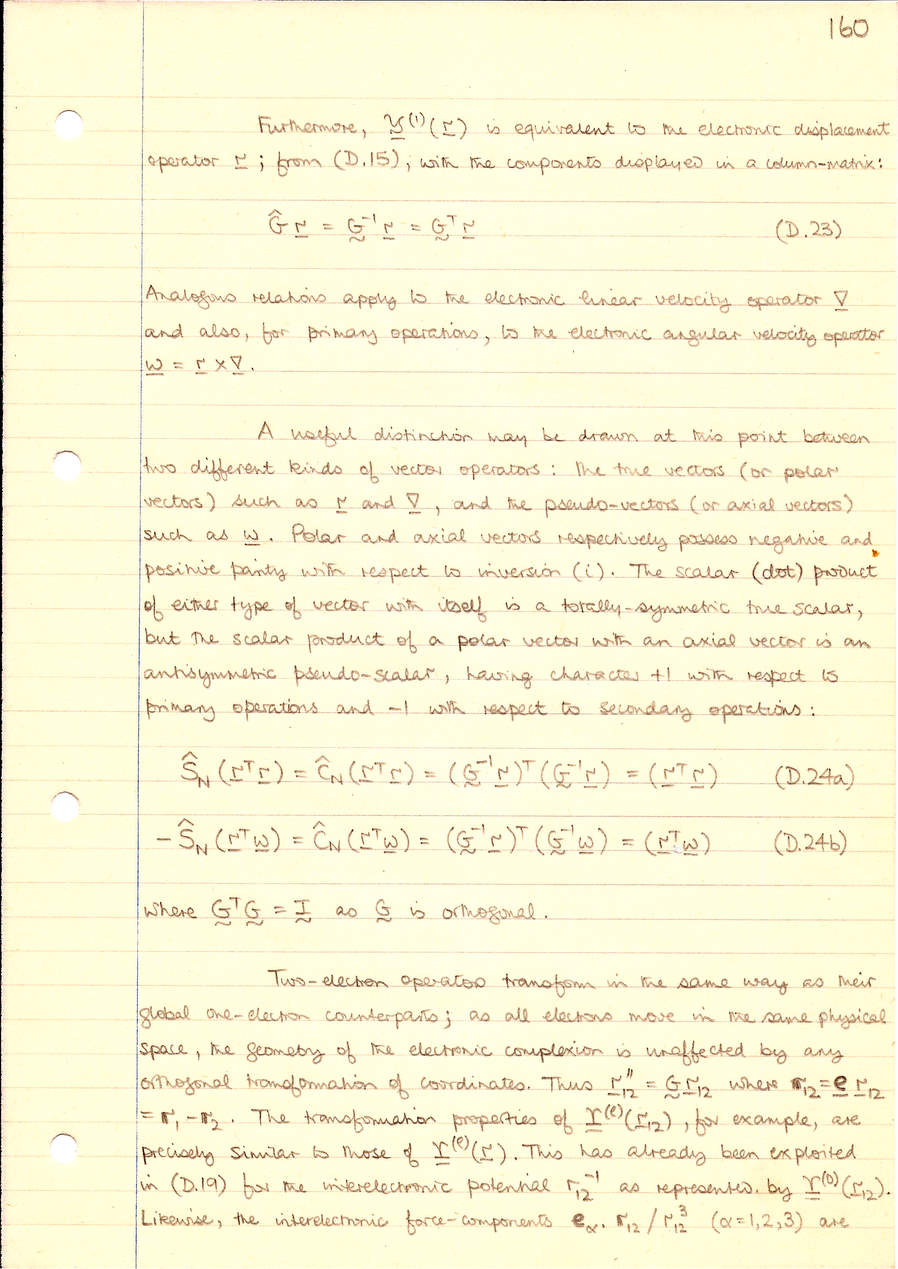 160
Furthermore, 𝒴̲⁽¹⁾(r̲) is equivalent to the electronic displacement
operator r̲ ; from (D.15), with the components displayed in a column-matrix:
Ĝ r̲ = G̰⁻¹ r̲ = G̰ᵀ r̲ (D.23)
Analogous relations apply to the electronic linear velocity operator ∇̲
and also, for primary operations, to the electronic angular velocity operator
ω̲ = r̲ × ∇̲.
A useful distinction may be drawn at this point between
two different kinds of vector operators: the true vectors (or polar
vectors) such as r̲ and ∇̲, and the pseudo-vectors (or axial vectors)
such as ω̲. Polar and axial vectors respectively possess negative and
positive parity with respect to inversion (i). The scalar (dot) product
of either type of vector with itself is a totally-symmetric true scalar,
but the scalar product of a polar vector with an axial vector is an
antisymmetric pseudo-scalar, having character +1 with respect to
primary operations and -1 with respect to secondary operations:
Ŝ_N (r̲ᵀr̲) = Ĉ_N (r̲ᵀr̲) = (G̰⁻¹r̲)ᵀ(G̰⁻¹r̲) = (r̲ᵀr̲) (D.24a)
-Ŝ_N (r̲ᵀω̲) = Ĉ_N (r̲ᵀω̲) = (G̰⁻¹r̲)ᵀ(G̰⁻¹ω̲) = (r̲ᵀω̲) (D.24b)
where G̰ᵀG̰ = Ḭ as G̰ is orthogonal.
Two-electron operators transform in the same way as their
global one-electron counterparts; as all electrons move in the same physical
space, the geometry of the electronic complexion is unaffected by any
orthogonal transformation of coordinates. Thus r̲₁₂″ = G̰ r̲₁₂ where 𝐫₁₂ = 𝐞̲ r̲₁₂
= 𝐫₁ - 𝐫₂. The transformation properties of Υ̲⁽ˡ⁾(r̲₁₂), for example, are
precisely similar to those of Υ̲⁽ˡ⁾(r̲). This has already been exploited
in (D.19) for the interelectronic potential r₁₂⁻¹ as represented by Υ̲⁽⁰⁾(r̲₁₂).
Likewise, the interelectronic force-components 𝐞_α. 𝐫₁₂/r₁₂³ (α=1,2,3) are